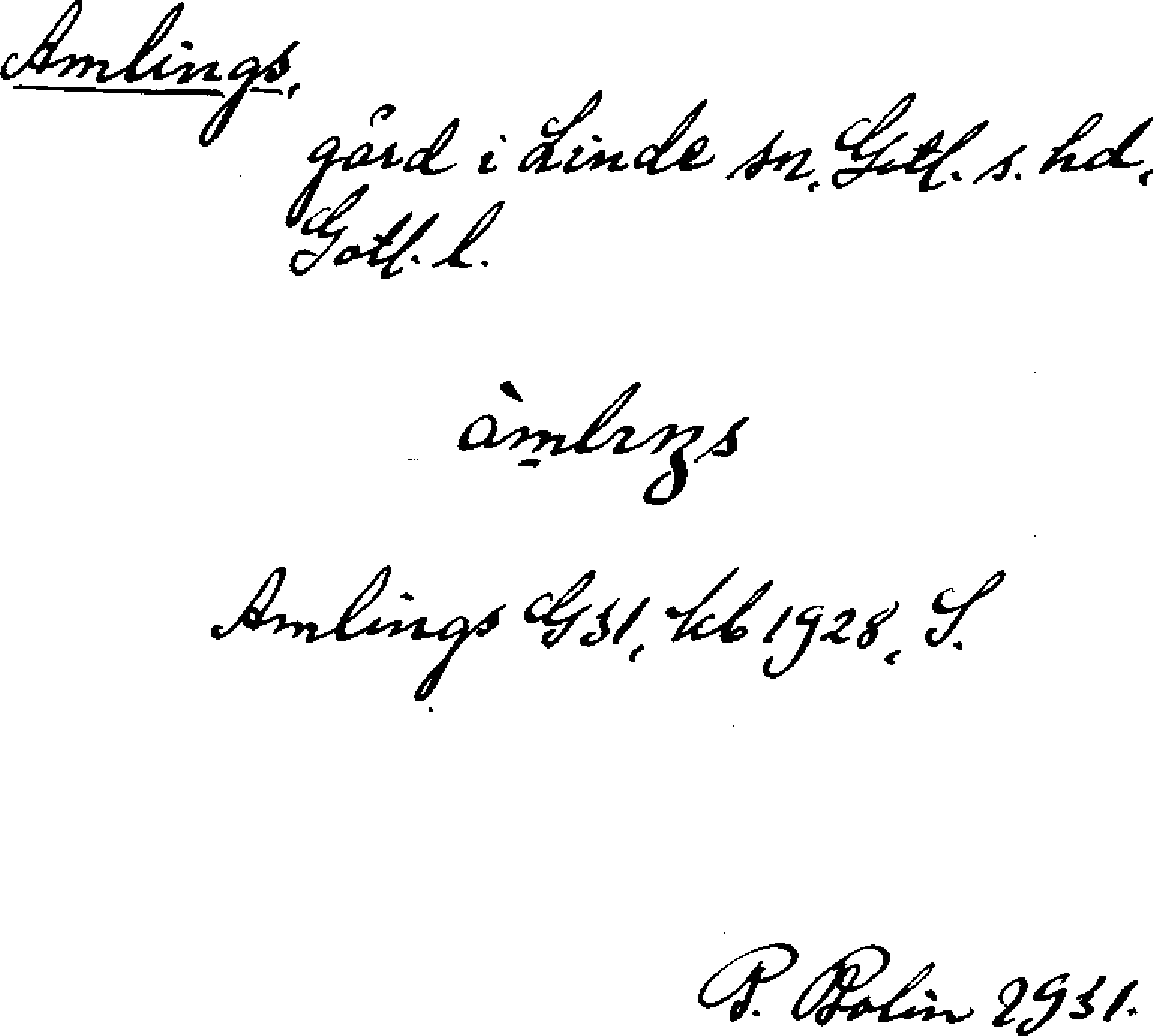 Amlings,
gård i Linde sn, Gotl. s. hd,
Gotl. l.
àm̱lıŋs
Amlings G31, kb 1928, S.
P. Bolin 1931.